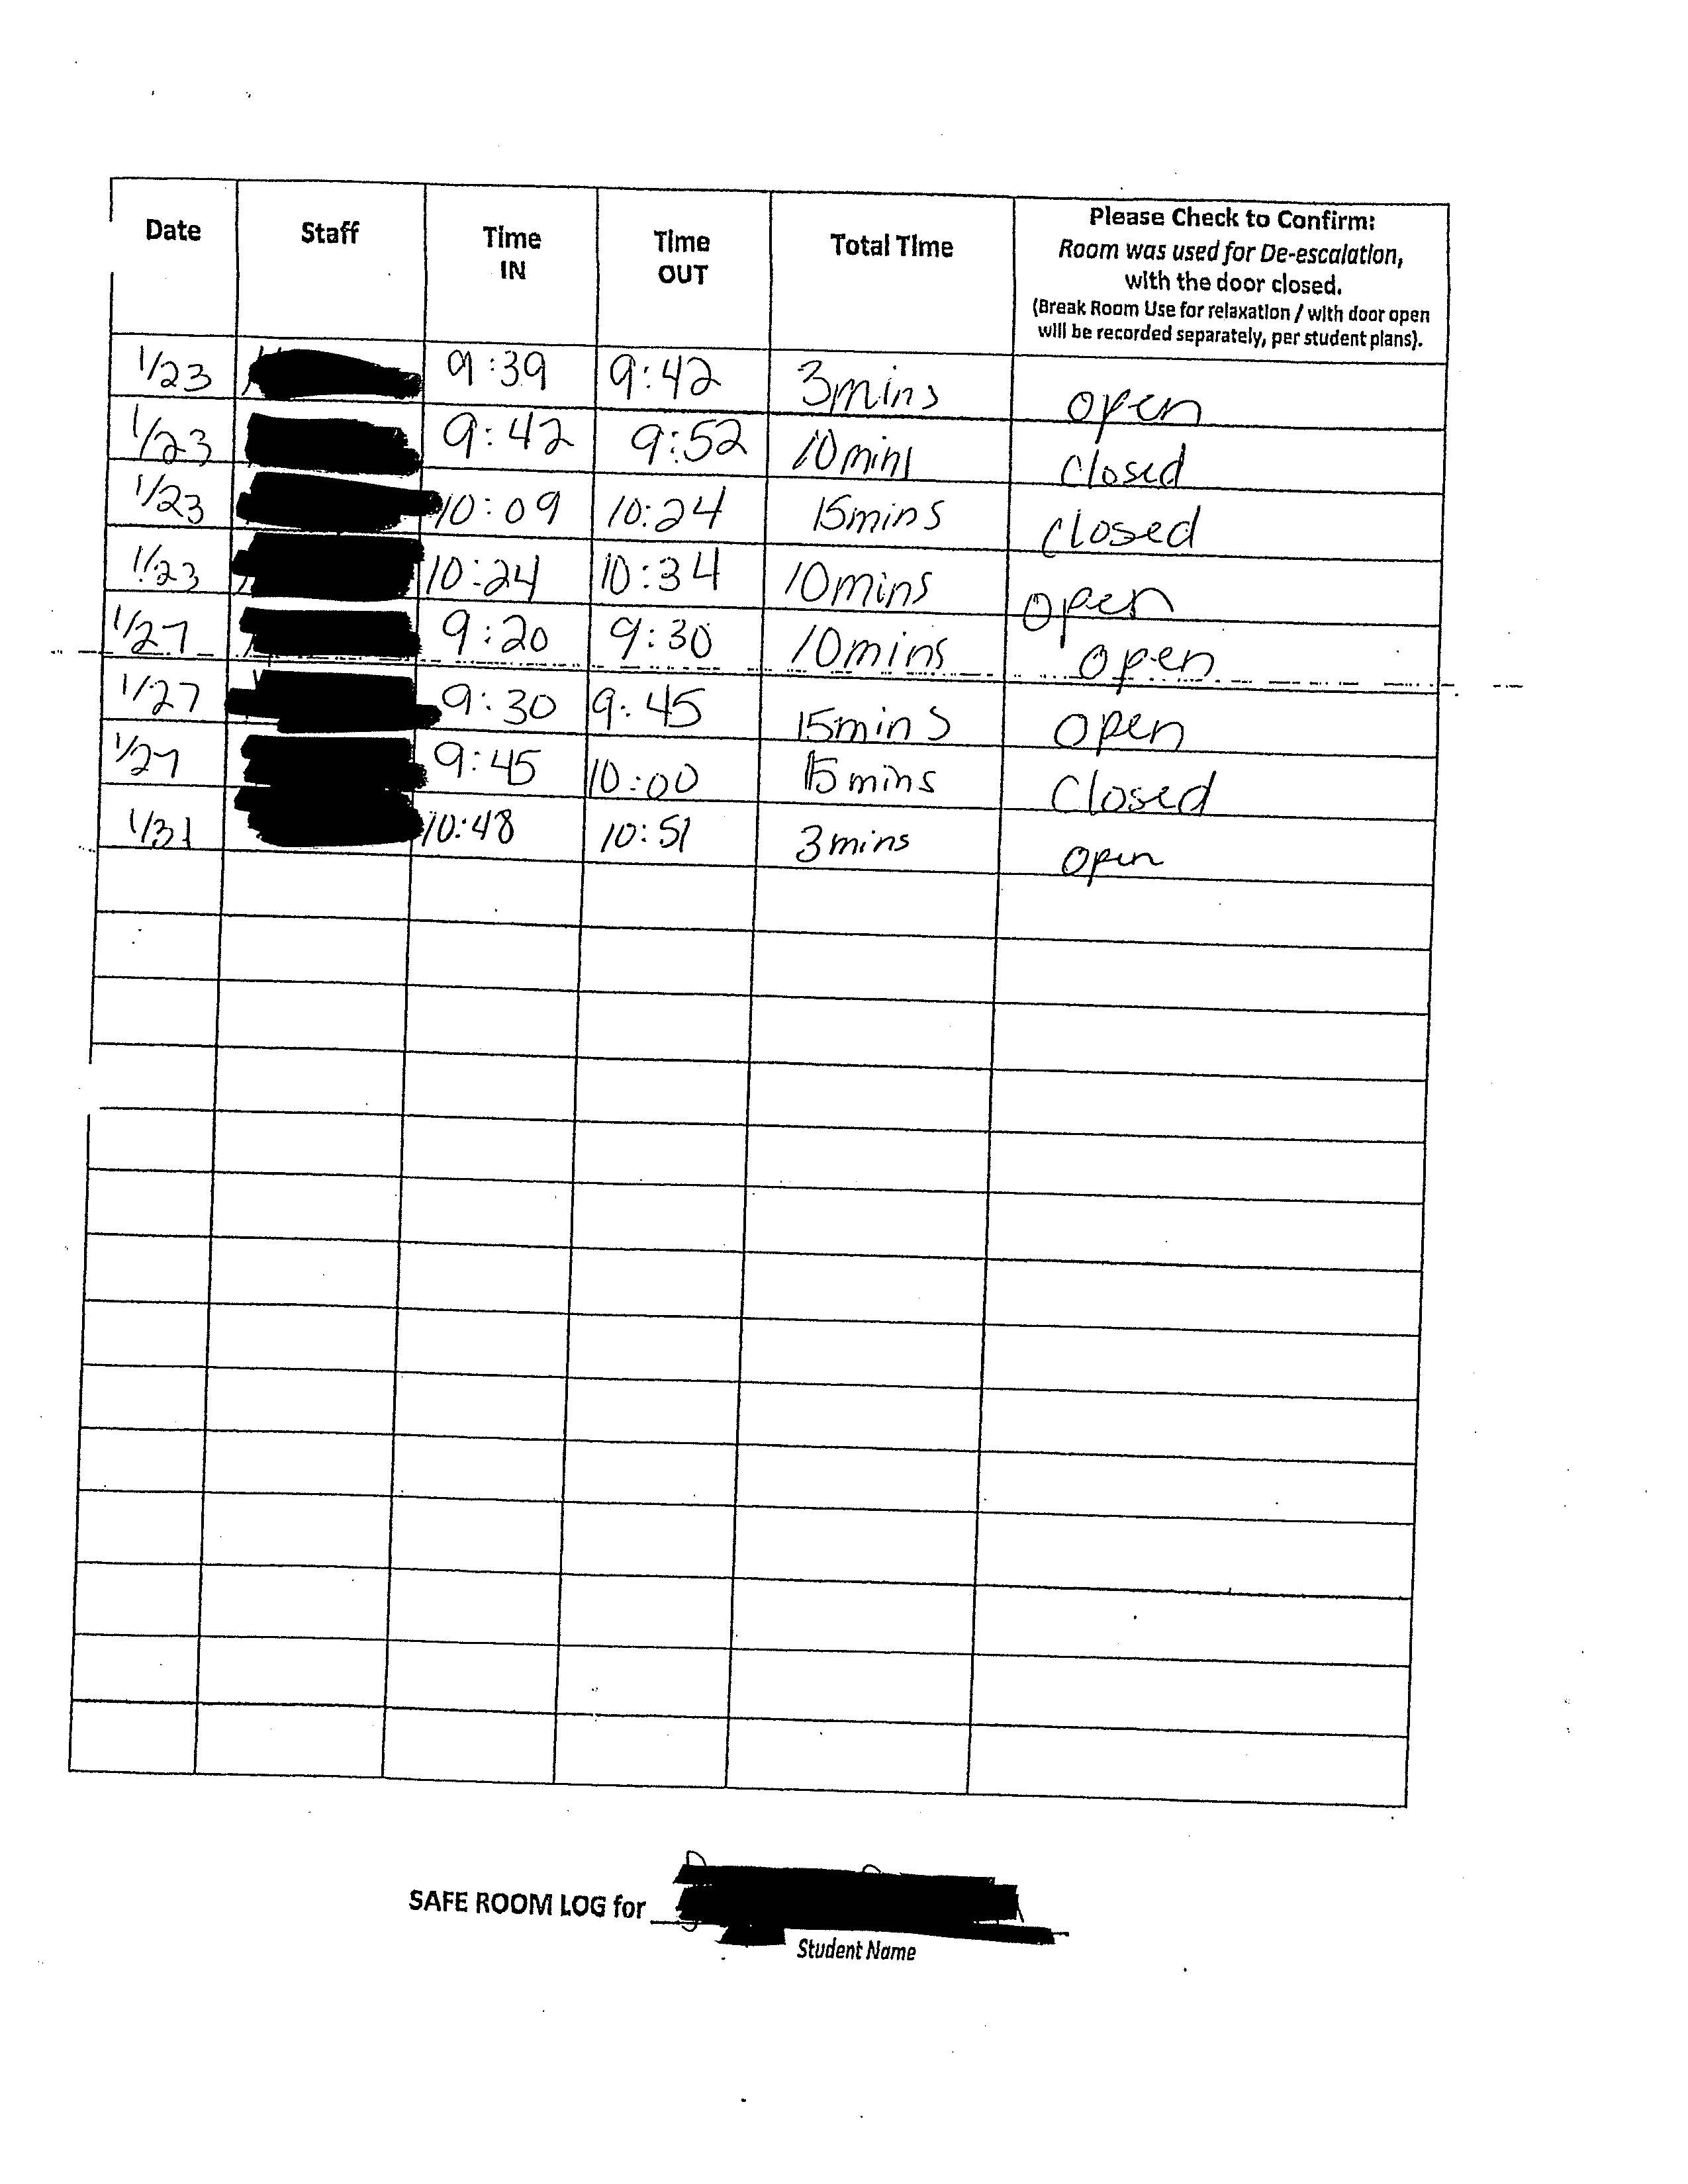 Date Staff Time IN Time OUT Total Time Please Check to Confirm:
Room was used for De-escalation,
with the door closed.
(Break Room Use for relaxation / with door open
will be recorded separately, per student plans).
1/23 9:39 9:42 3mins open
1/23 9:42 9:52 10mins closed
1/23 10:09 10:24 15mins closed
1/23 10:24 10:34 10mins open
1/27 9:20 9:30 10mins open
1/27 9:30 9:45 15mins open
1/27 9:45 10:00 15mins closed
1/31 10:48 10:51 3mins open
SAFE ROOM LOG for
Student Name